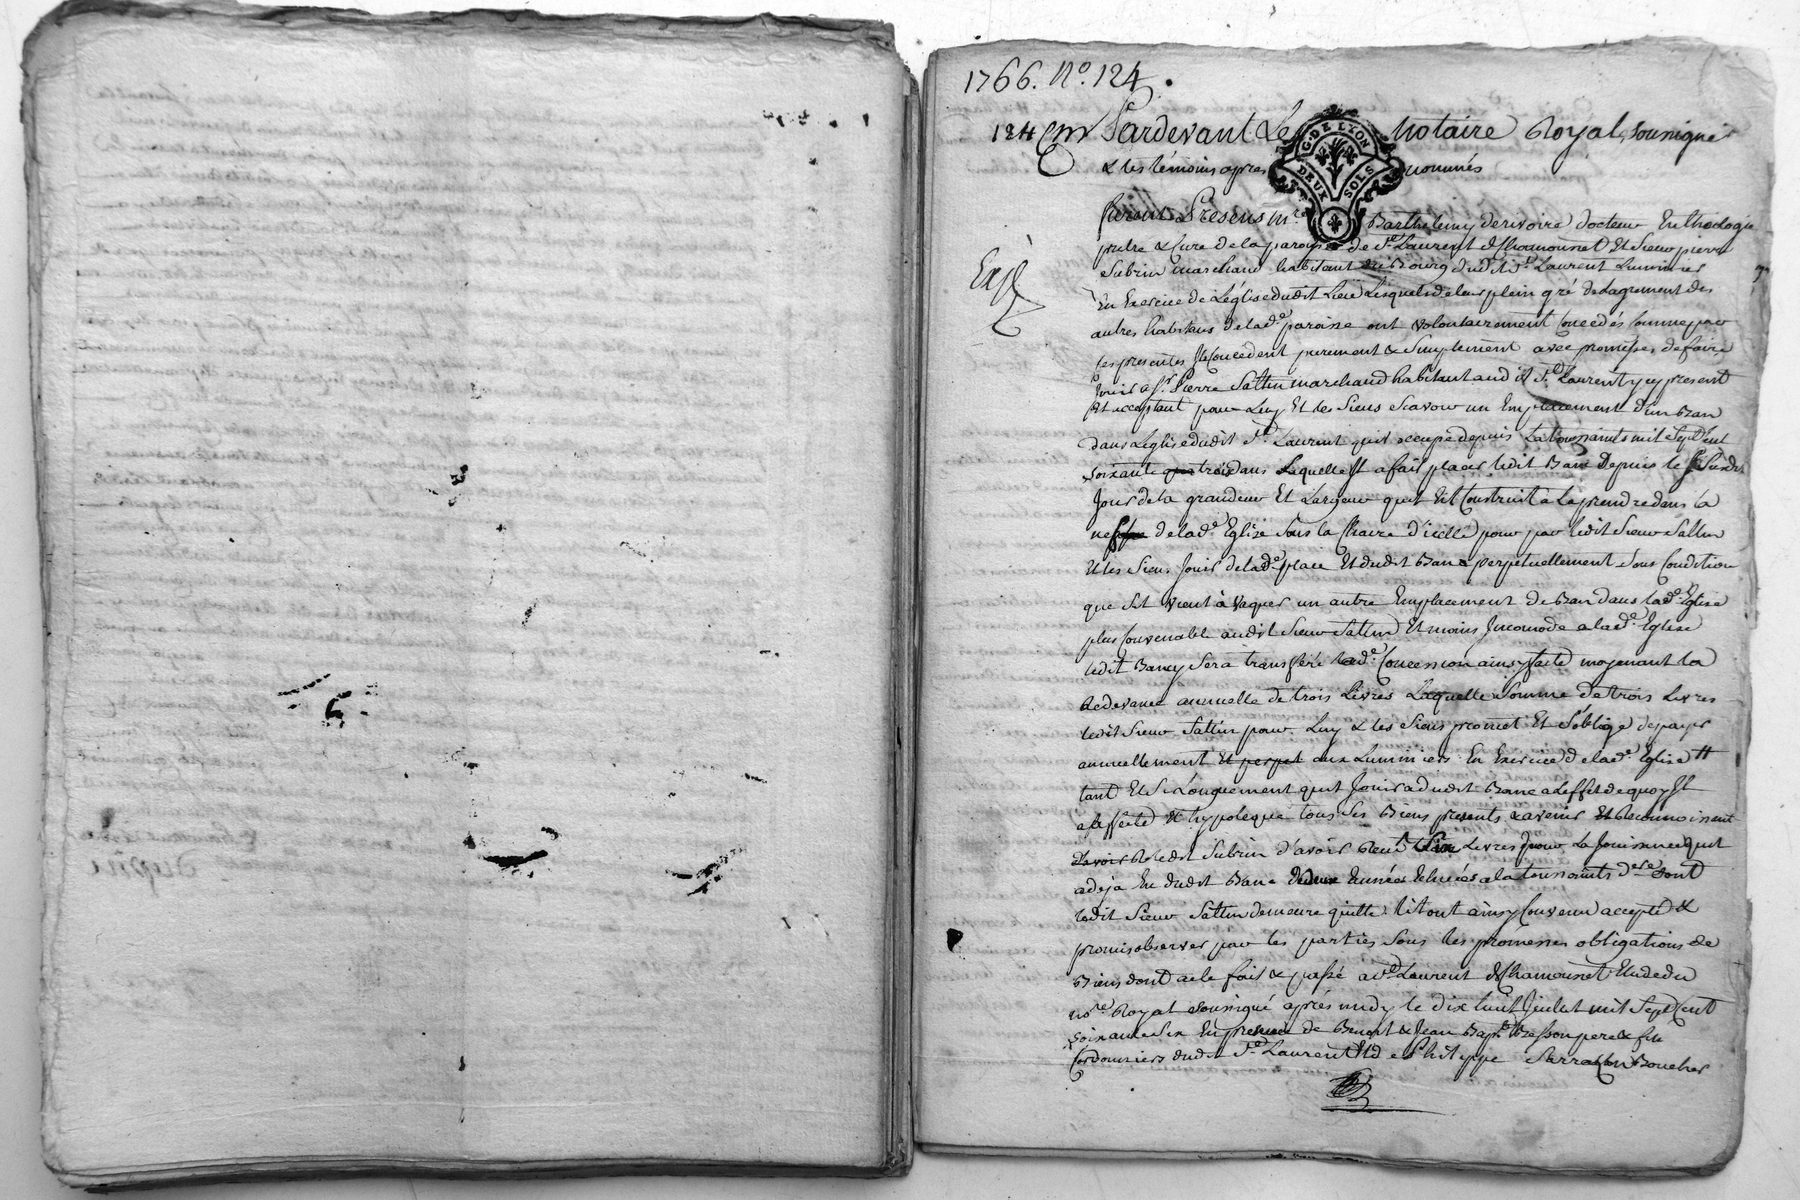 1766. No. 124.
124 em Pardevant Le Notaire Royal, sousigné
G. DE LYON
DEUX SOLS
& les témoins apres nommés
furent Presens mre Barthelemy derivoire docteur En theologie
pretre & Cure de la paroisse de St Laurent d'Chamousset Et Sieur pierre
Subrin marchand habitant du Bourg dudit St Laurent Luminier
Exp
En Exercice de L'église dudit Lieu Lesquels de leur plein gré de Lagrement des
autres habitans de lade paroisse ont volontairement Concedés Comme par
les presentes Ils Concedent purement & Simplement avec promesses de faire
Jouir a Sr Pierre Sattin marchand habitant audit St Laurent y cy present
Et acceptant pour Luy Et les Siens Scavoir un Emplacement d'un Ban
dans Leglise dudit St Laurent qu'il occupe depuis La toussaints mil Sept Cent
soixante trois dans Laquelle Il a fait placer ledit Banc Depuis le
Jour de la grandeur Et Largeur qu'il Est Construit a Le prendre dans la
nef de lade Eglise Sous la Chaire d'icelle pour par ledit Sieur Sattin
Et les Siens Jouir de lade place Et dudit Banc perpetuellement Sous Condition
que Sil vient à Vaquer un autre Emplacement de Ban dans lade Eglise
plus Convenable audit Sieur Sattin Et moins Incomode a lade Eglise
ledit Banc y Sera transferé lade Concession ainsy faite moyenant la
Redevance annuelle de trois Livres Laquelle Somme de trois Livres
ledit Sieur Sattin pour Luy & les Siens promet Et S'oblige de payer
annuellement Et perpet aux Luminiers En Exercice de lade Eglise
tant Et Si Longuement qu'il Jouira dudit Banc a Leffet de quoy Il
affecte & hypoteque tous Ses Biens presents & avenir Et Reconnoissant
d'avoir ledit Subrin d'avoir Receu Livres pour La Jouissance qu'il
a deja Eu dudit Banc Années Echuées a la toussaints dere dont
ledit Sieur Sattin demeure quitte le tout ainsy Convenu accepté &
promis observer par les parties Sous les promesses obligations de
Biens dont acte fait & passé a St Laurent d'Chamousset Etude du
nore Royal sousigné après midy le dix huit Juillet mil Sept Cent
soixante Six En presence de Benoit & Jean Bapte Besson pere & fils
Cordonniers dudit St Laurent Et de Philippe Sarrazin Boucher